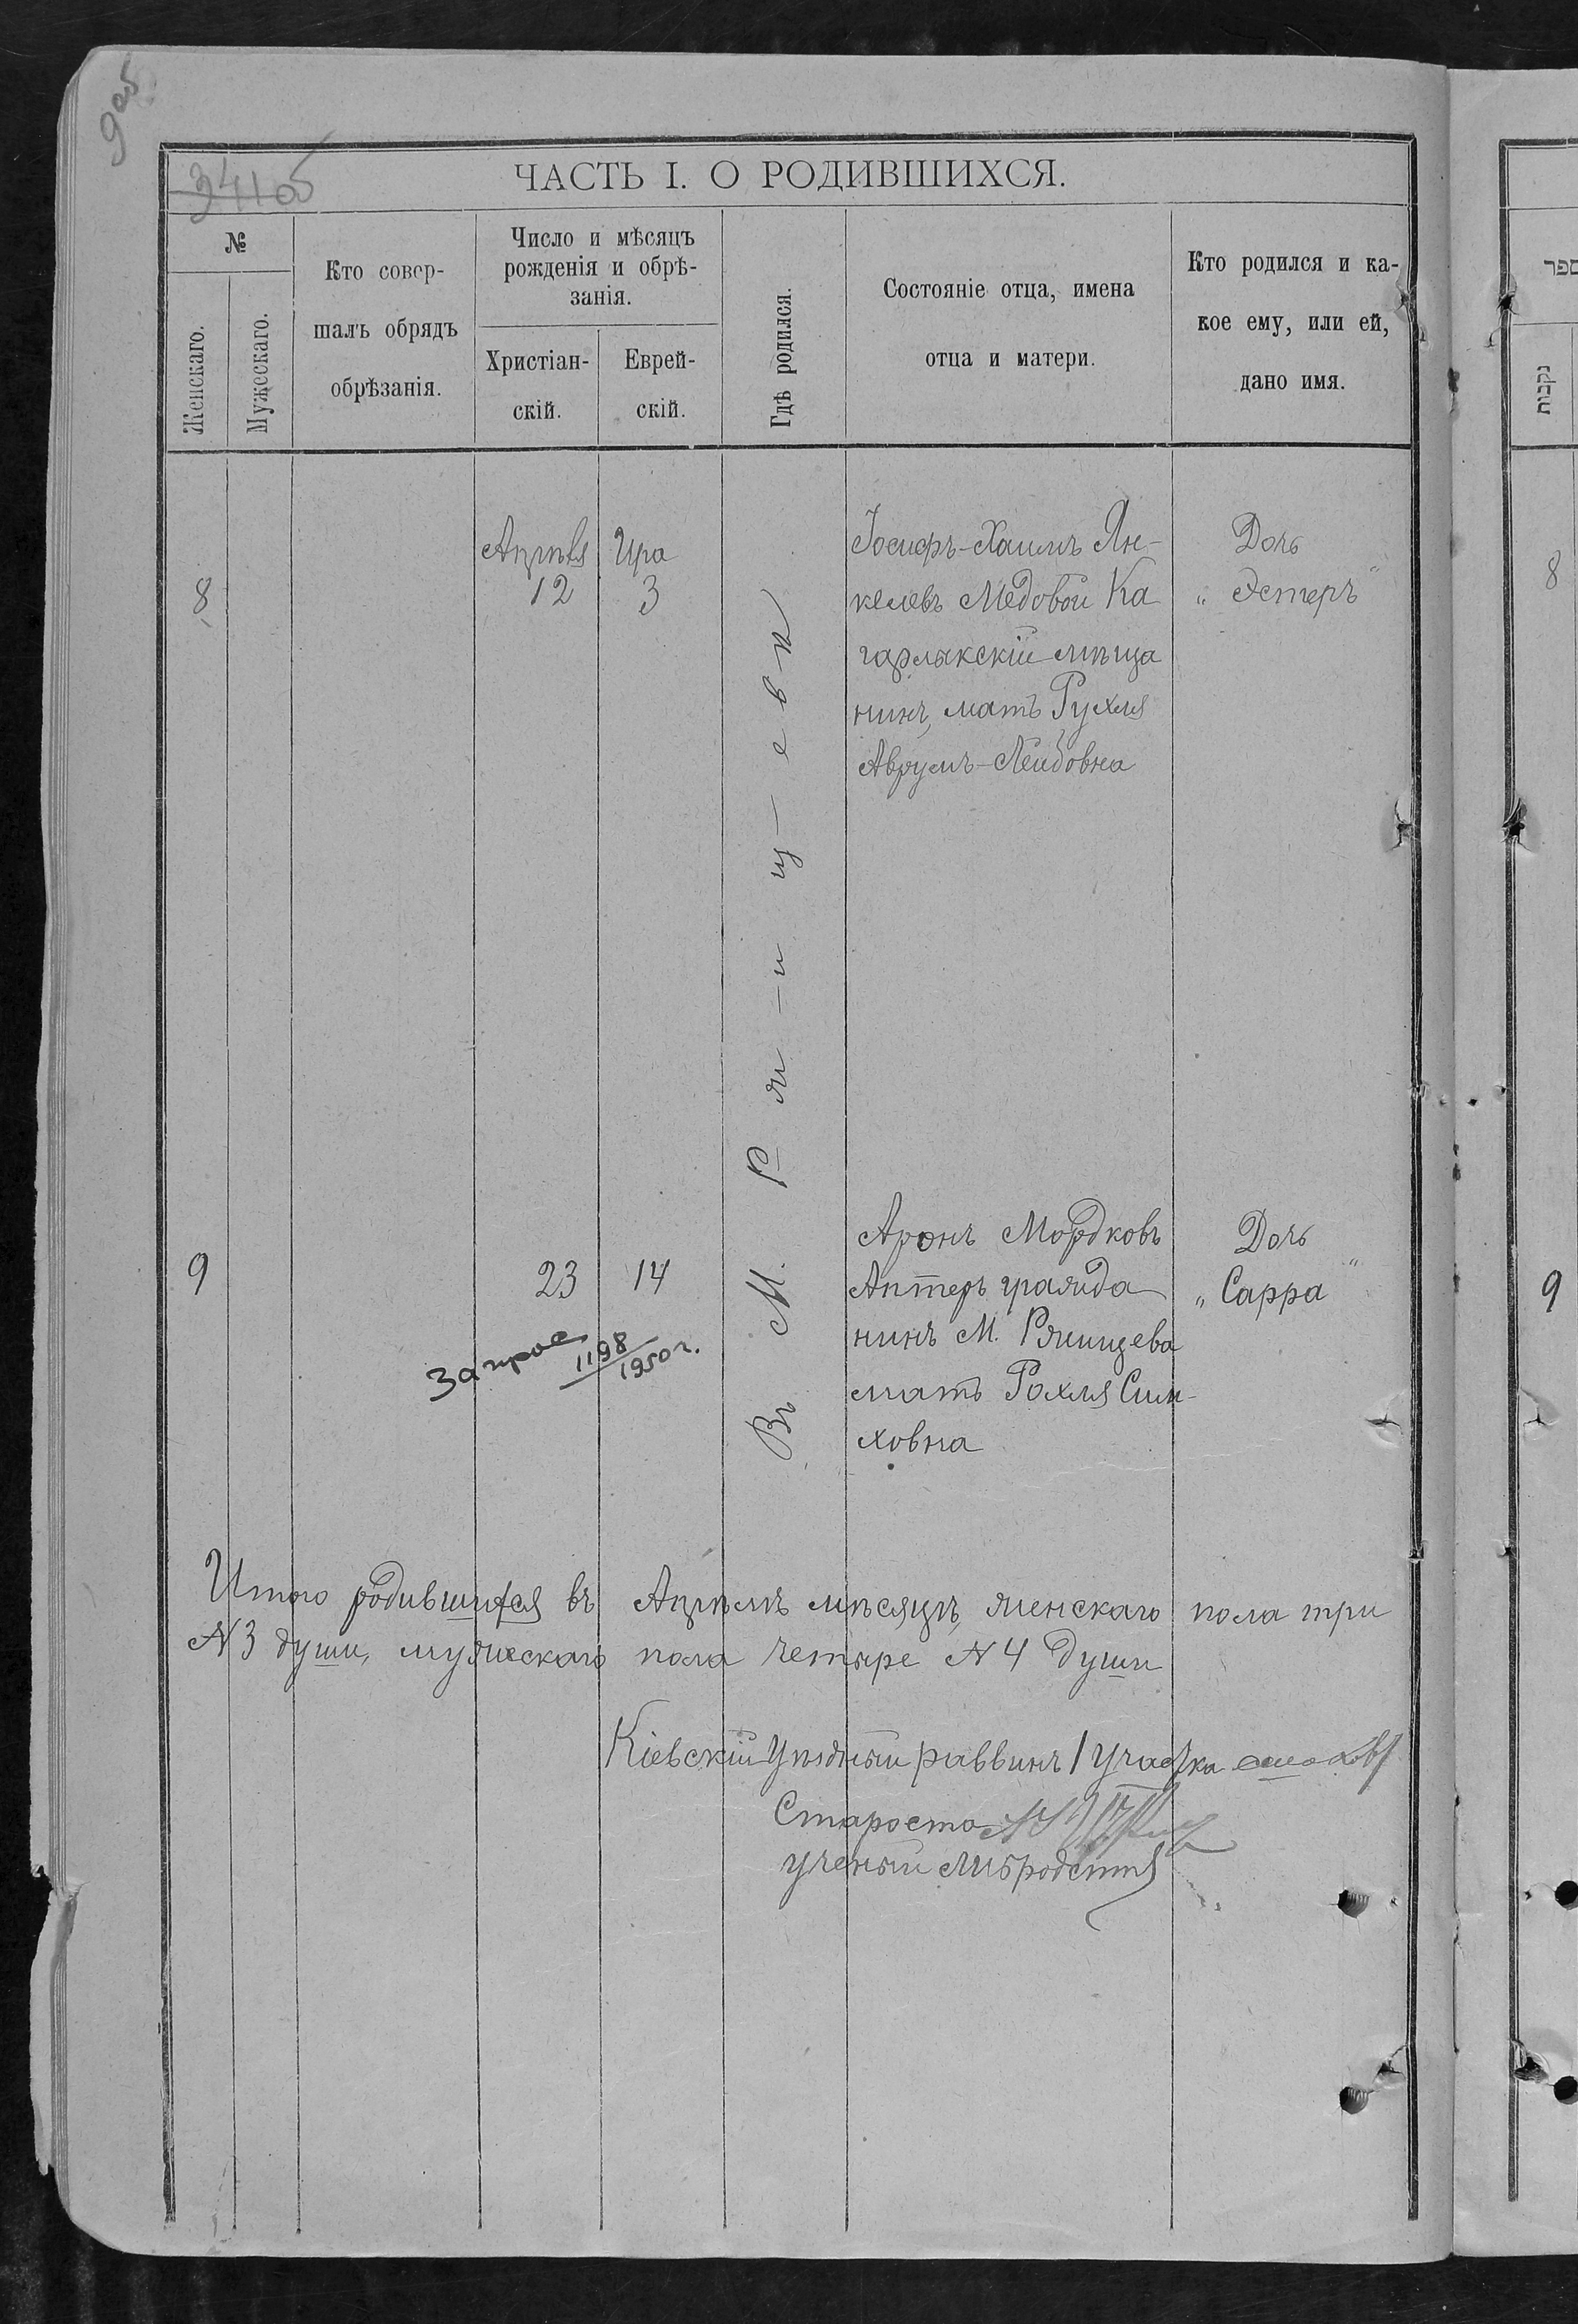 9об
341об
ЧАСТЬ I. О РОДИВШИХСЯ.
№
Женскаго.
Мужескаго.
Кто совер-
шалъ обрядъ
обрѣзанія.
Число и мѣсяцъ
рожденія и обрѣ-
занія.
Христіан-
скій.
Еврей-
скій.
Гдѣ родился.
Состояніе отца, имена
отца и матери.
Кто родился и ка-
кое ему, или ей,
дано имя.
8
Апрѣля
12
Ира
3
Въ М. Ржищевѣ
Іосифъ-Хаимъ Ян-
келевъ Медовой Ка
гарлыкскій мѣща
нинъ, мать Рухля
Аврумъ-Лейбовна
Дочь
„Эстеръ"
9
23
14
Аронъ Мордковъ
Аптеръ гражда
нинъ М. Ржищева
мать Рохля Сим-
ховна
Дочь
„Сарра"
Запрос 1198/1950 г.
Итого родившихся въ Апрѣлѣ мѣсяцѣ, женскаго пола три
№ 3 души, мужескаго пола четыре № 4 души
Кіевскій Уѣздный раввинъ 1 Участка
Староста
ученый
ספר
נקבות
8
9